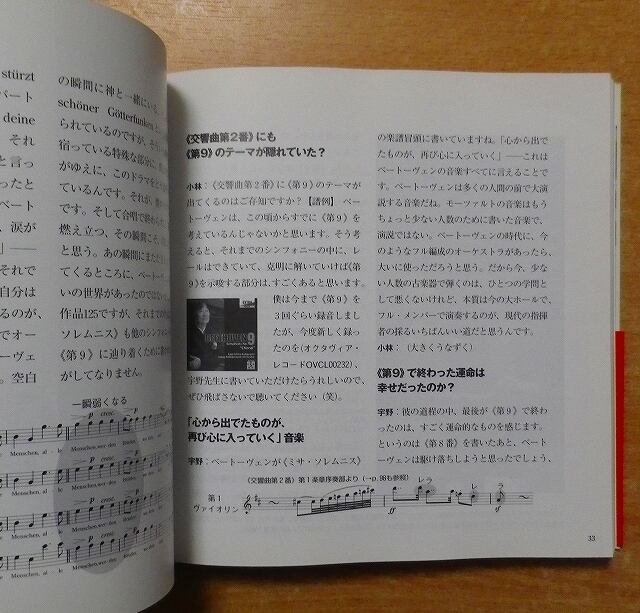 stürzt
ベート
deine
それ
と言っ
ったと
ベート
、涙が
」――
それで
自分は
るが、
でオー
ーヴェ
。空白
の瞬間に神と一緒にいる。
schöner Götterfunken と
られているのですが、そう
宿っている特殊な部分に、
がゆえに、このドラマをど
ているんです。それが、
です。そして合唱で終わら
燃え立つ、その瞬間こそ、
と思う。あの瞬間にまだ
てくるところに、ベートー
いの世界があったのではない
作品125ですが、それまでの
ソレムニス》も他のシンフォ
《第9》に辿り着くために書か
がしてなりません。
一瞬弱くなる
cresc.
Menschen, al - le Menschen, wer-den Brüder, wo
cresc.
Menschen, al - le Menschen, wer-den Brüder, wo
cresc.
Menschen, al - le Menschen, wer-den Brüder, wo
cresc.
Menschen, al - le Menschen, wer-den Brüder, wo
《交響曲第2番》にも
《第9》のテーマが隠れていた?
小林:《交響曲第2番》に《第9》のテーマが
出てくるのはご存知ですか?【譜例】ベー
トーヴェンは、この頃からすでに《第9》を
考えているんじゃないかと思います。そう考
えると、それまでのシンフォニーの中に、レ
ールはできていて、克明に解いていけば《第
9》を示唆する部分は、すごくあると思います。
僕は今まで《第9》を
3回ぐらい録音しまし
たが、今度新しく録っ
たのを(オクタヴィア・
レコードOVCL00232)、
宇野先生に書いていただけたらうれしいので、
ぜひ飛ばさないで聴いてください(笑)。
BEETHOVEN 9
「心から出でたものが、
再び心に入っていく」音楽
宇野:ベートーヴェンが《ミサ・ソレムニス》
の楽譜冒頭に書いていますね。「心から出で
たものが、再び心に入っていく」――これは
ベートーヴェンの音楽すべてに言えることで
す。ベートーヴェンは多くの人間の前で大演
説する音楽だね。モーツァルトの音楽はもう
ちょっと少ない人数のために書いた音楽で、
演説ではない。ベートーヴェンの時代に、今
のようなフル編成のオーケストラがあったら、
大いに使っただろうと思う。だから今、少な
い人数の古楽器で弾くのは、ひとつの学問と
して悪くないけれど、本質は今の大ホールで、
フル・メンバーで演奏するのが、現代の指揮
者の採るいちばんいい道だと思うんです。
小林:(大きくうなずく)
《第9》で終わった運命は
幸せだったのか?
宇野:彼の道程の中、最後が《第9》で終わ
ったのは、すごく運命的なものを感じます。
というのは《第8番》を書いたあと、ベート
ーヴェンは駆け落ちしようと思ったでしょう、
《交響曲第2番》第1楽章序奏部より(→p.98も参照)
レラ
レ
ラ
第1
ヴァイオリン
cresc.
33